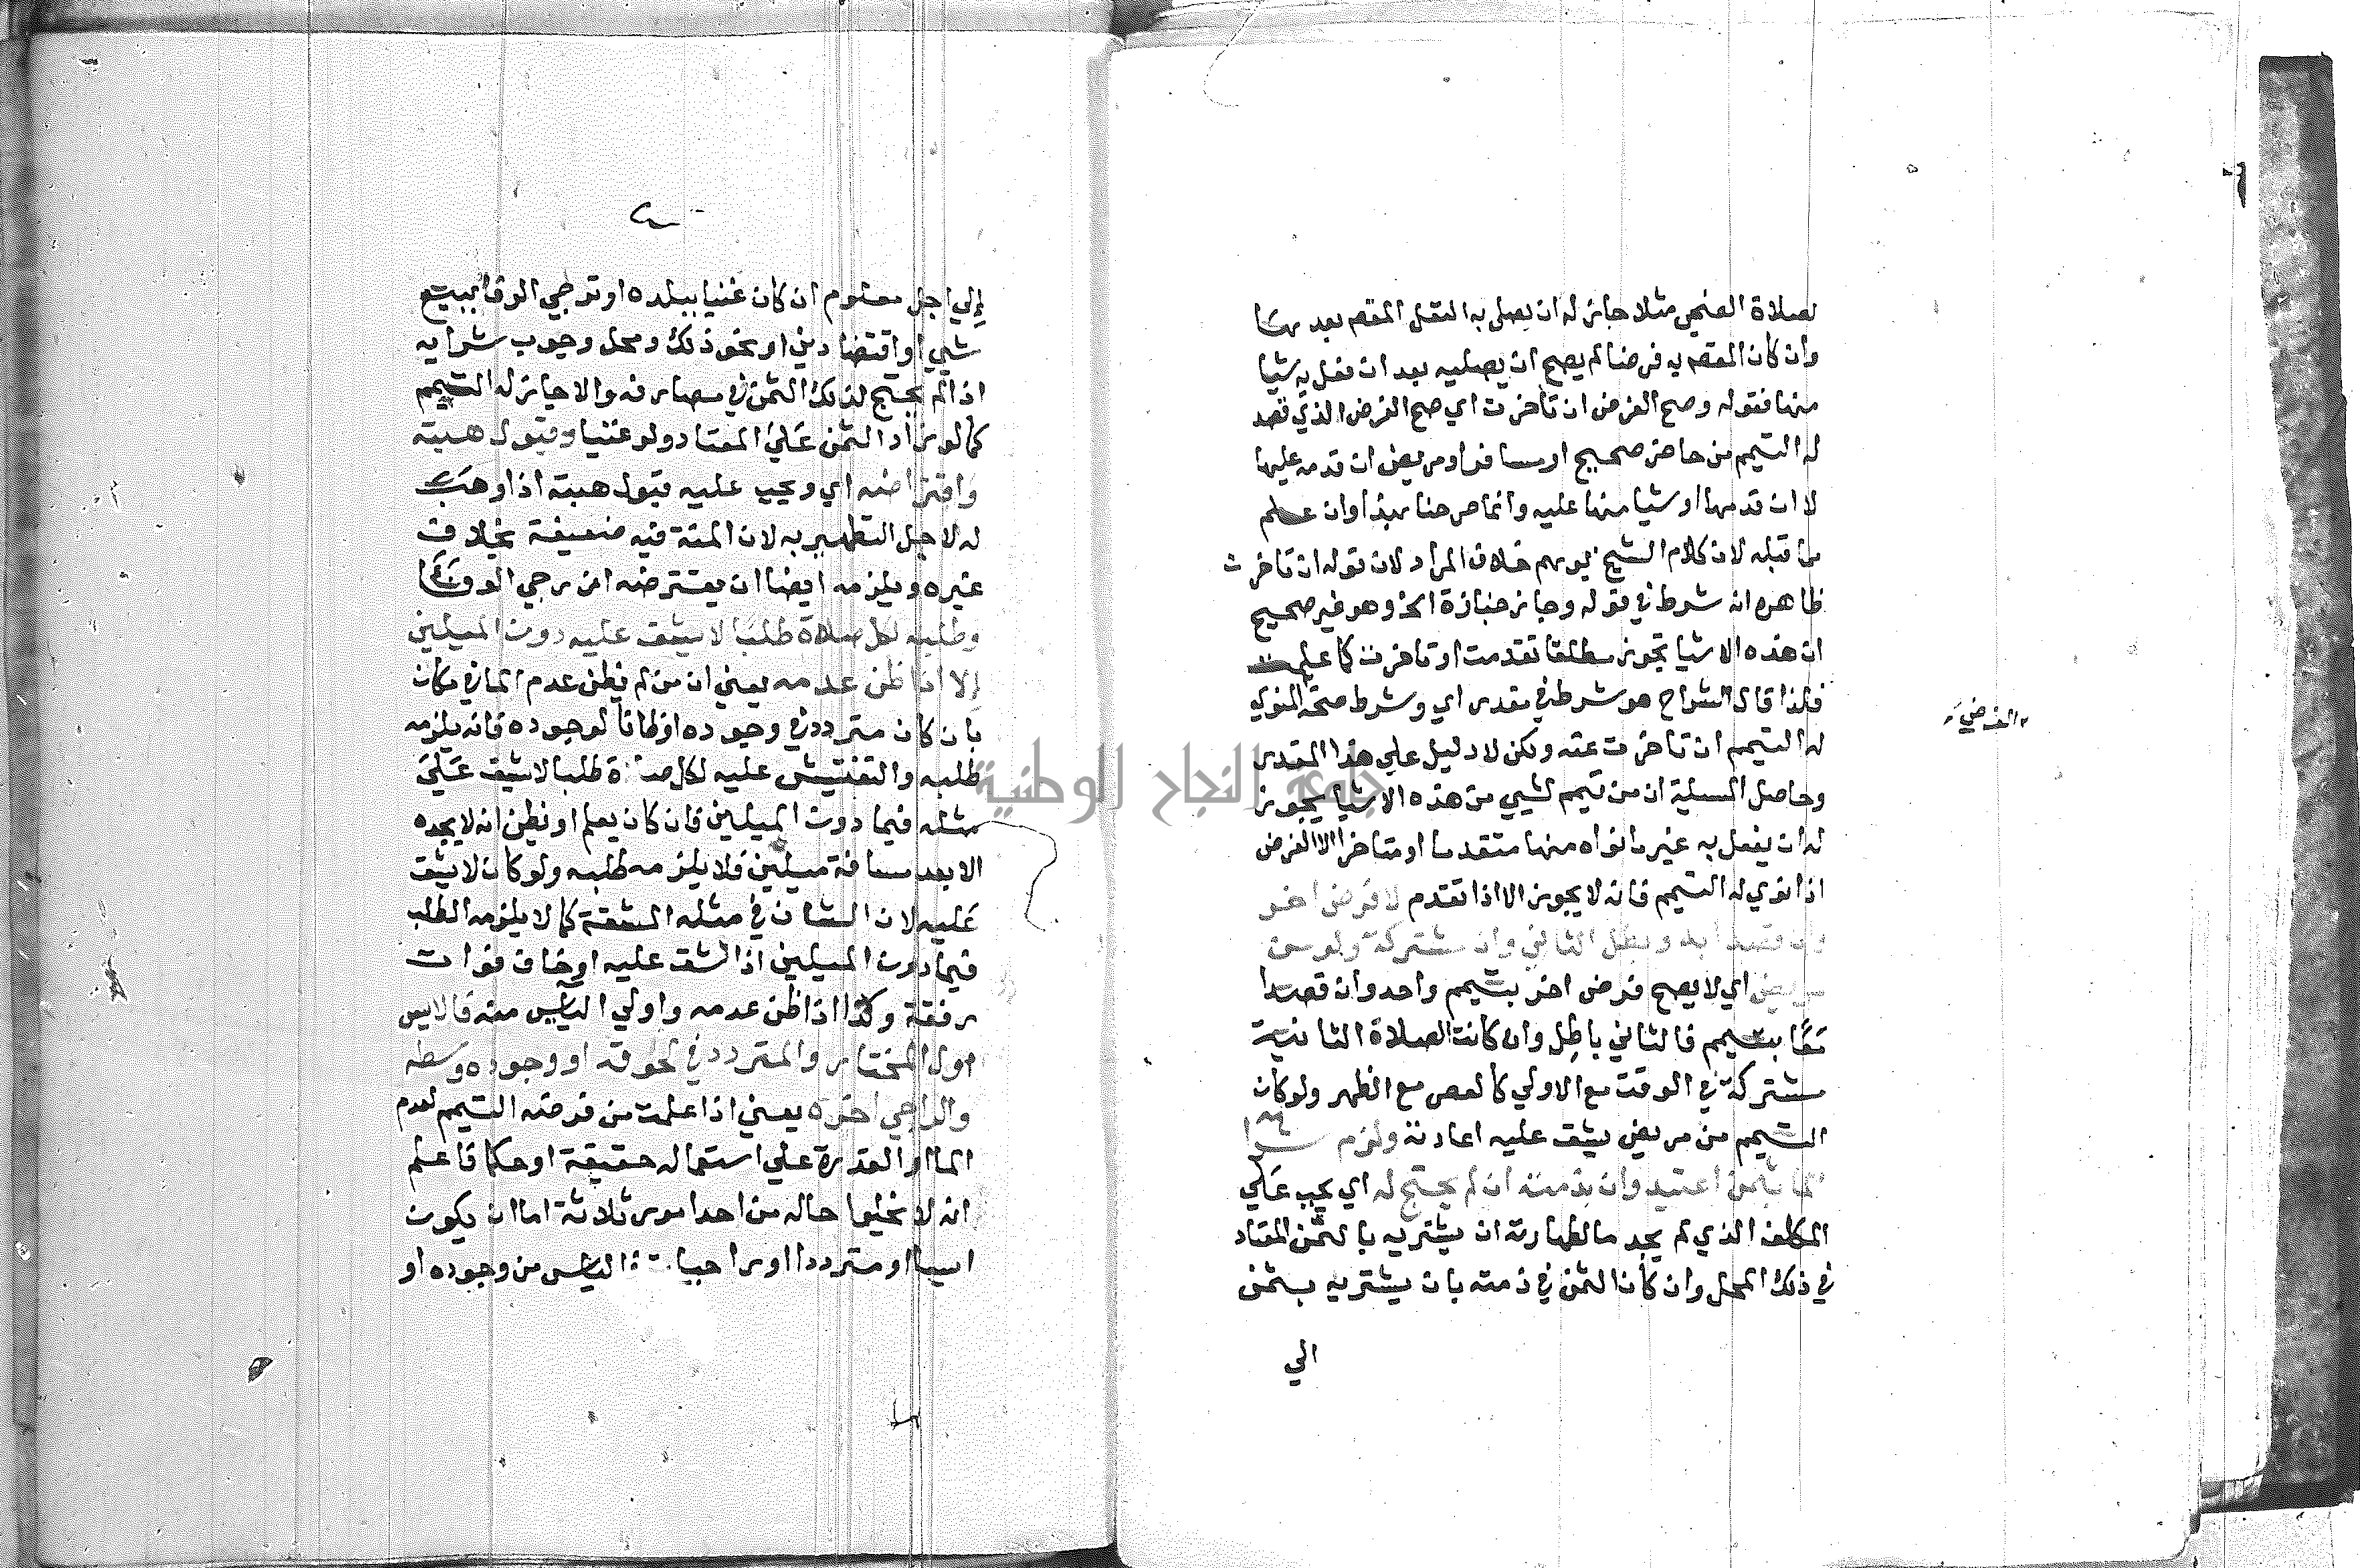 لصلاة الضحي مثلا جاز له ان يصلي به النفل المقصم بعد بها
وان كان المقصم به فرضا لم يصح ان يصليه بعد ان فعل به شيا
منها فقوله وصح الفرض ان تأخرت اي صح الفرض الذي قصد
له التيمم من حاضر صحيح او مسافر او مريض ان قدمه عليها
لا ان قدمها او شيا منها عليه وانما صرحنا بهذا وان علم
من قبله لان كلام الشيخ يوهم خلاف المراد لان قوله ان تاخرت
ظاهره انه شرط في قوله وجاز جنازة الخ وهو غير صحيح
ان هذه الاشيا تجوز مطلقا تقدمت او تاخرت كما علمت
فلذا قال الشراح هو شرط في مقدر اي وشرط صحة المنوي
له التيمم ان تاخرت عنه ولكن لا دليل علي هذا المقدر
وحاصل المسيلة ان من تيمم لشيي من هذه الاشيا يجوز
له ان يفعل به غير ما نواه منها متقدما او متاخرا الا الفرض
اذا نوي له التيمم فانه لا يجوز الا اذا تقدم لا فرض اخر
وان قصدا به وبطل الثاني وان مشتركة ولو من
مريض اي لا يصح فرض اخر بتيمم واحد وان قصدا
معًا بتيمم فالثاني باطل وان كانت الصلاة الثانية
مشتركة في الوقت مع الاولي كالعصر مع الظهر ولو كان
التيمم من مريض يشق عليه اعادته ولزم شرا
الما بثمن اعتيد وان بذمته ان لم يحتج له اي يجب علي
المكلف الذي لم يجد ما لطهارته ان يشتريه بالثمن المعتاد
في ذلك المحل وان كان الثمن في ذمته بان يشتريه بثمن
الي
الفرضي
إلي اجل معلوم ان كان غنيا ببلده او ترجي الوفا ببيع
شيي او اقتضا دين او نحو ذلك ومحل وجوب شرايه
اذا لم يحتج لذلك الثمن في مصارفه والا جاز له التيمم
كما لو زاد الثمن علي المعتاد ولو غنيا وقبول هبته
واقتراضه اي ويجب عليه قبول هبته اذا وهب
له لاجل التطهير به لان المنة فيه ضعيفة بخلاف
غيره ويلزمه ايضا ان يقترضه ان رجي الوفا
وطلبه لكل صلاة طلبا لا يشق عليه دون الميلين
إلا اذا ظن عدمه يعني ان من لم يظن عدم الما في مكان
بان كان متردد في وجوده او ظانا لوجوده فانه يلزمه
طلبه والتفتيش عليه لكل صلاة طلبا لا يشق علي
مثله فيما دون الميلين فان كان يعلم او يظن انه لا يجده
الا بعد مسافة ميلين فلا يلزمه طلبه ولو كان لا يشق
عليه لان الشان في مثله المشقة كما لا يلزمه الطلب
فيما دون الميلين اذا شق عليه او خاف فوات
رفقة وكذا اذا ظن عدمه واولي الياس منه فالايس
اول المختار والمتردد في لحوقه او وجوده وسطه
والراجي اخره يعني اذا علمت من فرضه التيمم لعدم
الما او القدرة علي استعماله حقيقة او حكما فاعلم
انه لا يخلوا حاله من احد امور ثلاثة اما ان يكون
ايسا او مترددا او راجيا الياس من وجوده او